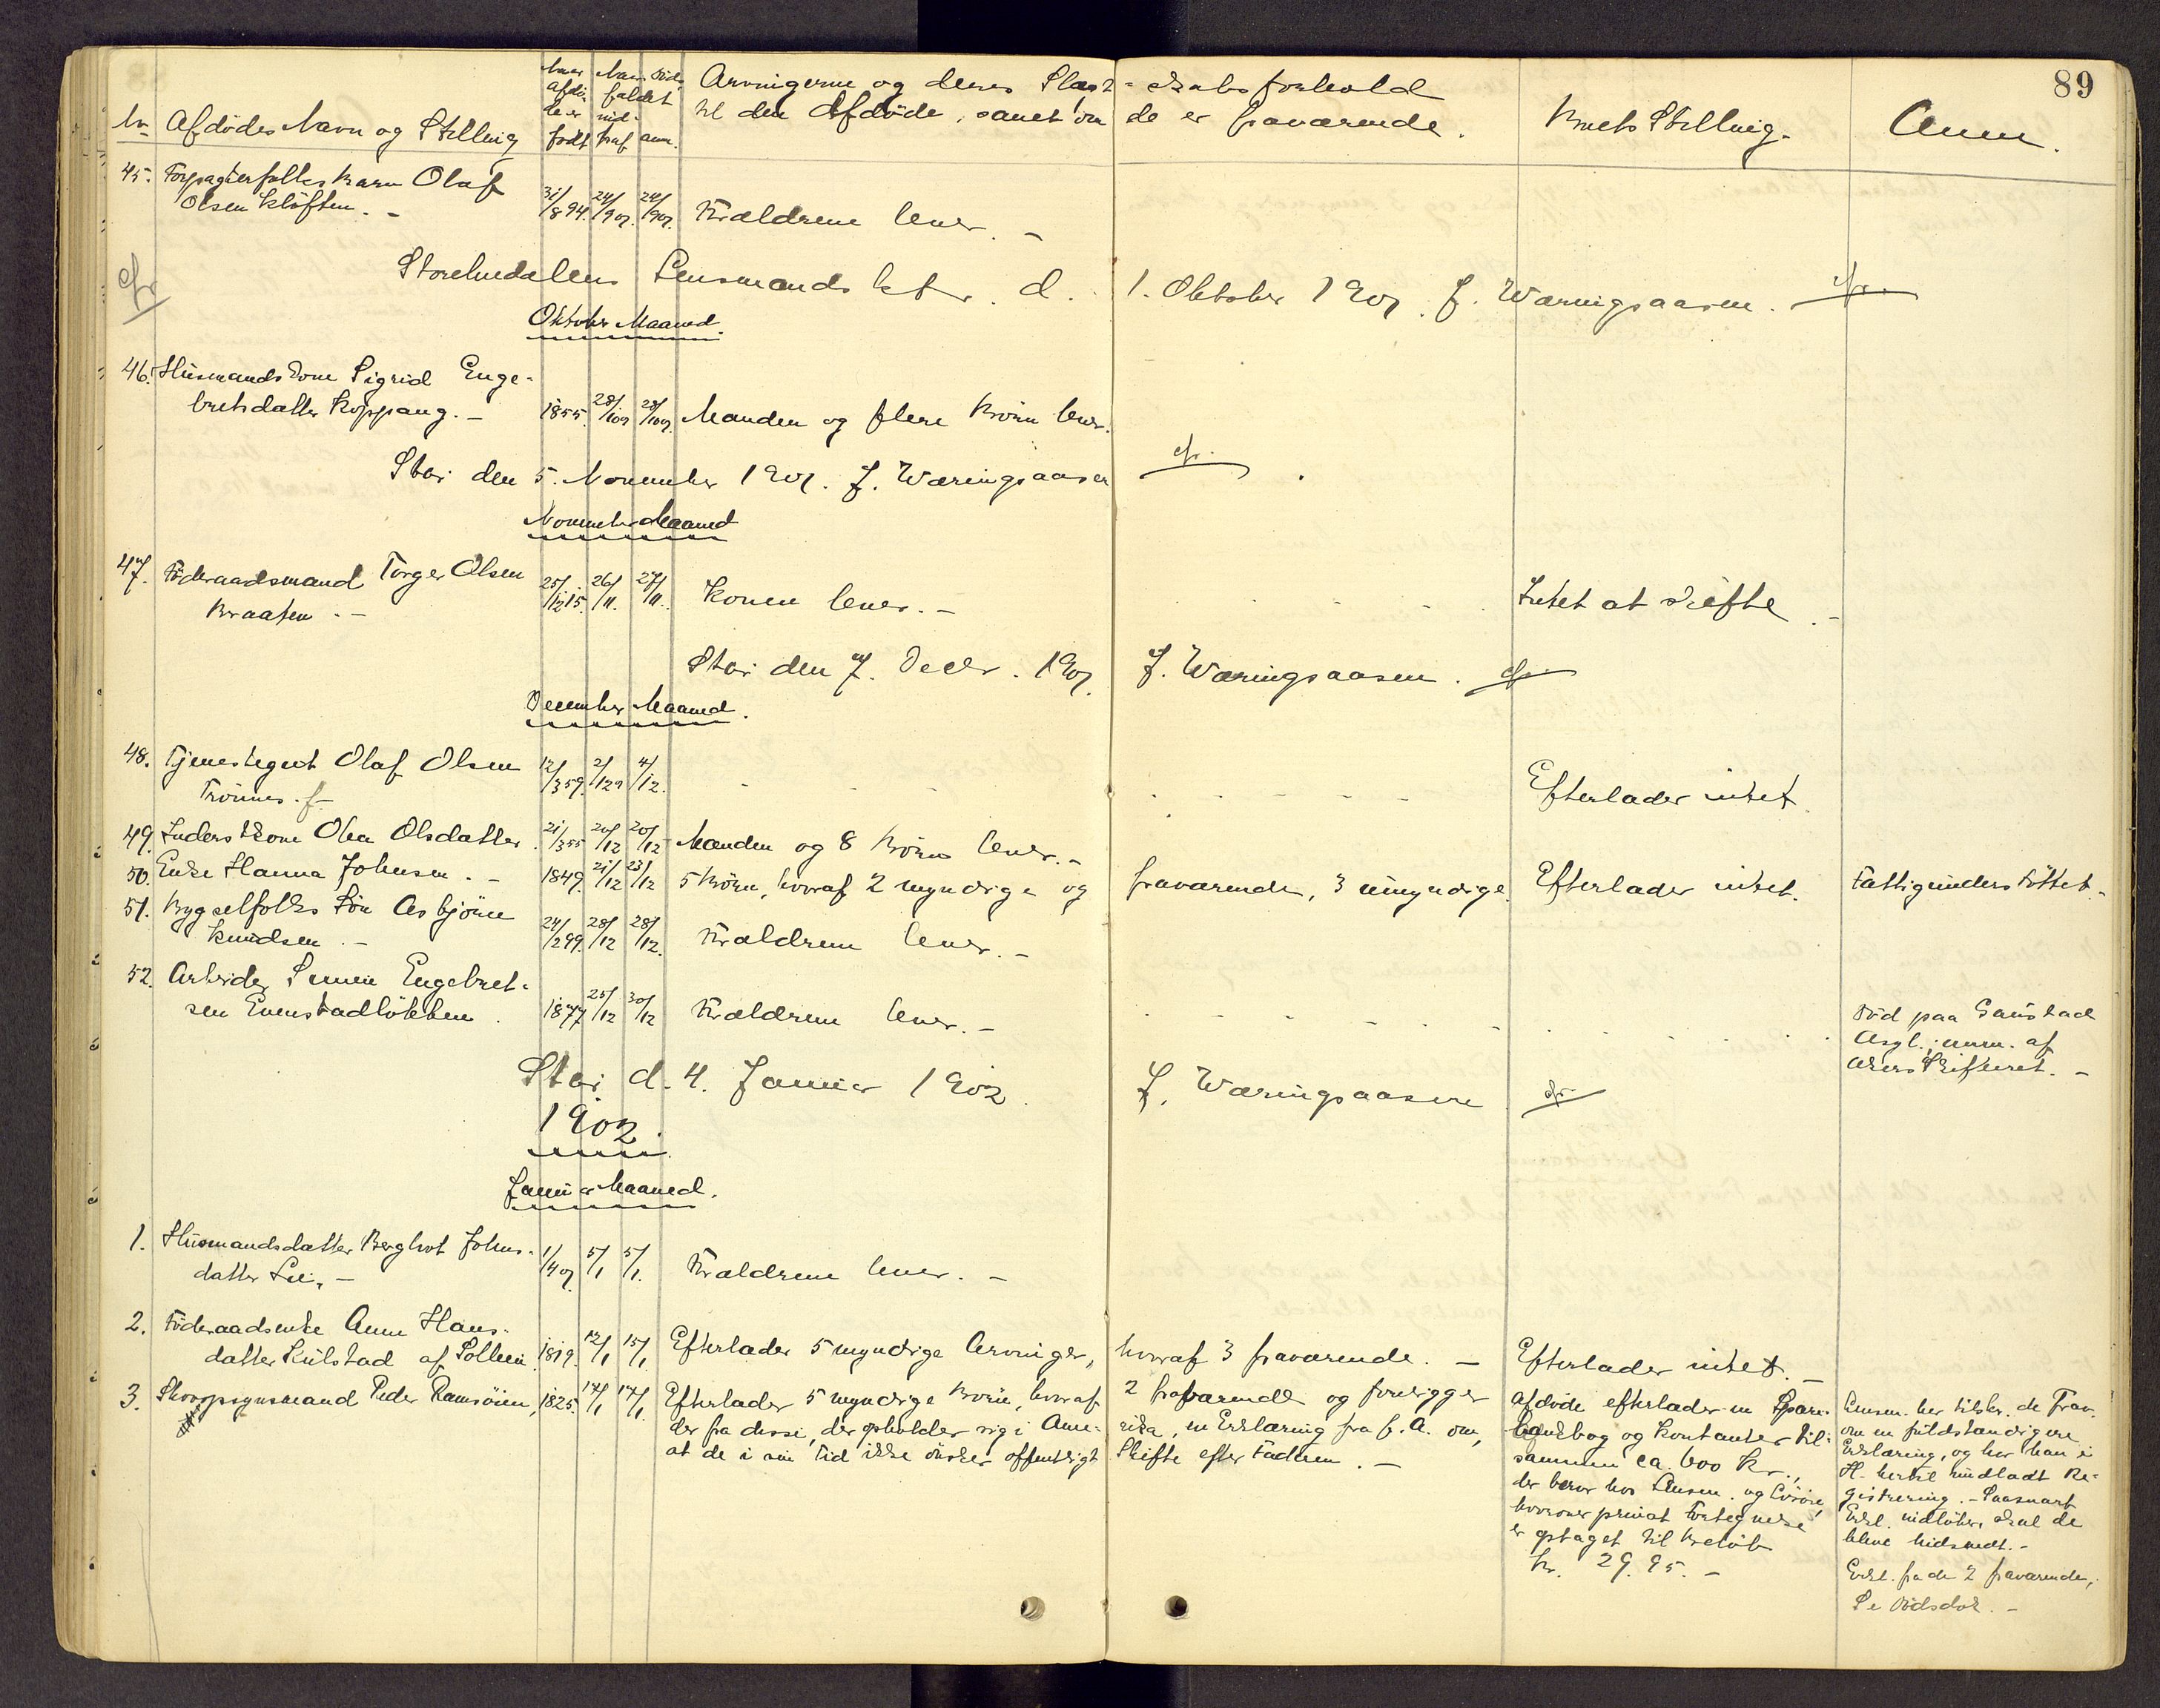 89
Nr. Afdödes Navn og Stilling
Naar afdöde er født
Naar Död faldet ind
traf anm.
Arvingerne og deres Slægtskabsforhold
til den Afdöde, samt om de er fraværende.
Boets Stilling.
Anm.
45. Forpagterfolks Barn Olaf
Olsen Kløften. - 31/8 94. 24/9 01. 24/9 01. Forældrene lever. -
Storelvedalens Lensmandsktr. d. 1. Oktober 1901. J. Wæringsaasen.
Oktober Maaned.
46. Husmandskone Sigrid Enge-
bretsdatter Koppang. - 1855. 28/10 28/10 Manden og flere Börn lever.
Stai den 5. November 1901. J. Wæringsaasen
November Maaned
47. Föderaadsmand Torger Olsen
Braaten. - 25/12 15. 26/11. 27/11. Konen lever. - Intet at skifte. -
Stai den 7. Decbr. 1901. J. Wæringsaasen.
December Maaned.
48. Tjenestegut Olaf Olsen 12/3 59. 2/12 4/12. - Efterlader intet.
Trönnes.
49. Inderstkone Olea Olsdatter. 21/3 55 20/12 20/12 Manden og 8 Börn lever. -
50. Enke Hanna Johnsen. - 1849. 21/12 23/12 5 Börn, hvoraf 2 myndige og fraværende, 3 umyndige. Efterlader intet. Fattigunderstöttet. -
51. Bygselfolks Sön Asbjörn
Knudsen. - 24/2 99. 28/12 28/12. Forældrene lever. -
52. Arbeider Simen Engebret-
sen Evenstadlökken. 1877 25/12 30/12 Forældrene lever. - Död paa Gaustad
Asyl.; anm. af
Akers Skifteret. -
Stai d. 4. Januar 1902. J. Wæringsaasen
1902.
Januar Maaned.
1. Husmandsdatter Berghot Johns-
datter Lie. - 1/4 01. 5/1 5/1. Forældrene lever. -
2. Föderaadsenke Anne Hans-
datter Kulstad af Sollien. 1819. 12/1 15/1. Efterlader 5 myndige Arvinger, hvoraf 3 fraværende. - Efterlader intet. -
3. Skoopsynsmand Peder Ramsöien, 1825. 14/1 17/1. Efterlader 5 myndige Börn, hvoraf 2 fraværende og foreligger
der fra disse, der opholder sig i Ame- rika, en Erklæring fra f. A. om,
at de i sin Tid ikke ønsker offentligt Skifte efter Faderen. -
Afdöde efterlader en Spare-
bankbog og Kontanter til-
sammen ca. 600 Kr.,
der beror hos Lensm. og Lösöre,
hvorover privat Fortegnelse
er optaget til Belöb
Kr. 29.95. -
Lensm. har tilskr. de Frav.
om en fuldstændigere
Erklæring, og har han i
H. hertil undladt Re-
gistrering. - Saasnart
Erkl. indlöber, skal de
blive hidsendt. -
Erkl. fra de 2 fraværende,
Se Dödsdok. -